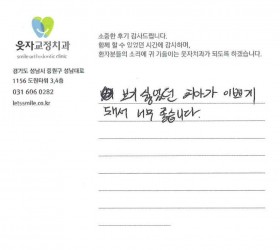 웃자교정치과
smile orthodontic clinic
경기도 성남시 중원구 성남대로
1156 도원타워 3,4층
031 606 0282
letssmile.co.kr
소중한 후기 감사드립니다.
함께 할 수 있었던 시간에 감사하며,
환자분들의 소리에 귀 기울이는 웃자치과가 되도록 하겠습니다.
보기 싫었던 치아가 이쁘게
돼서 너무 좋습니다.